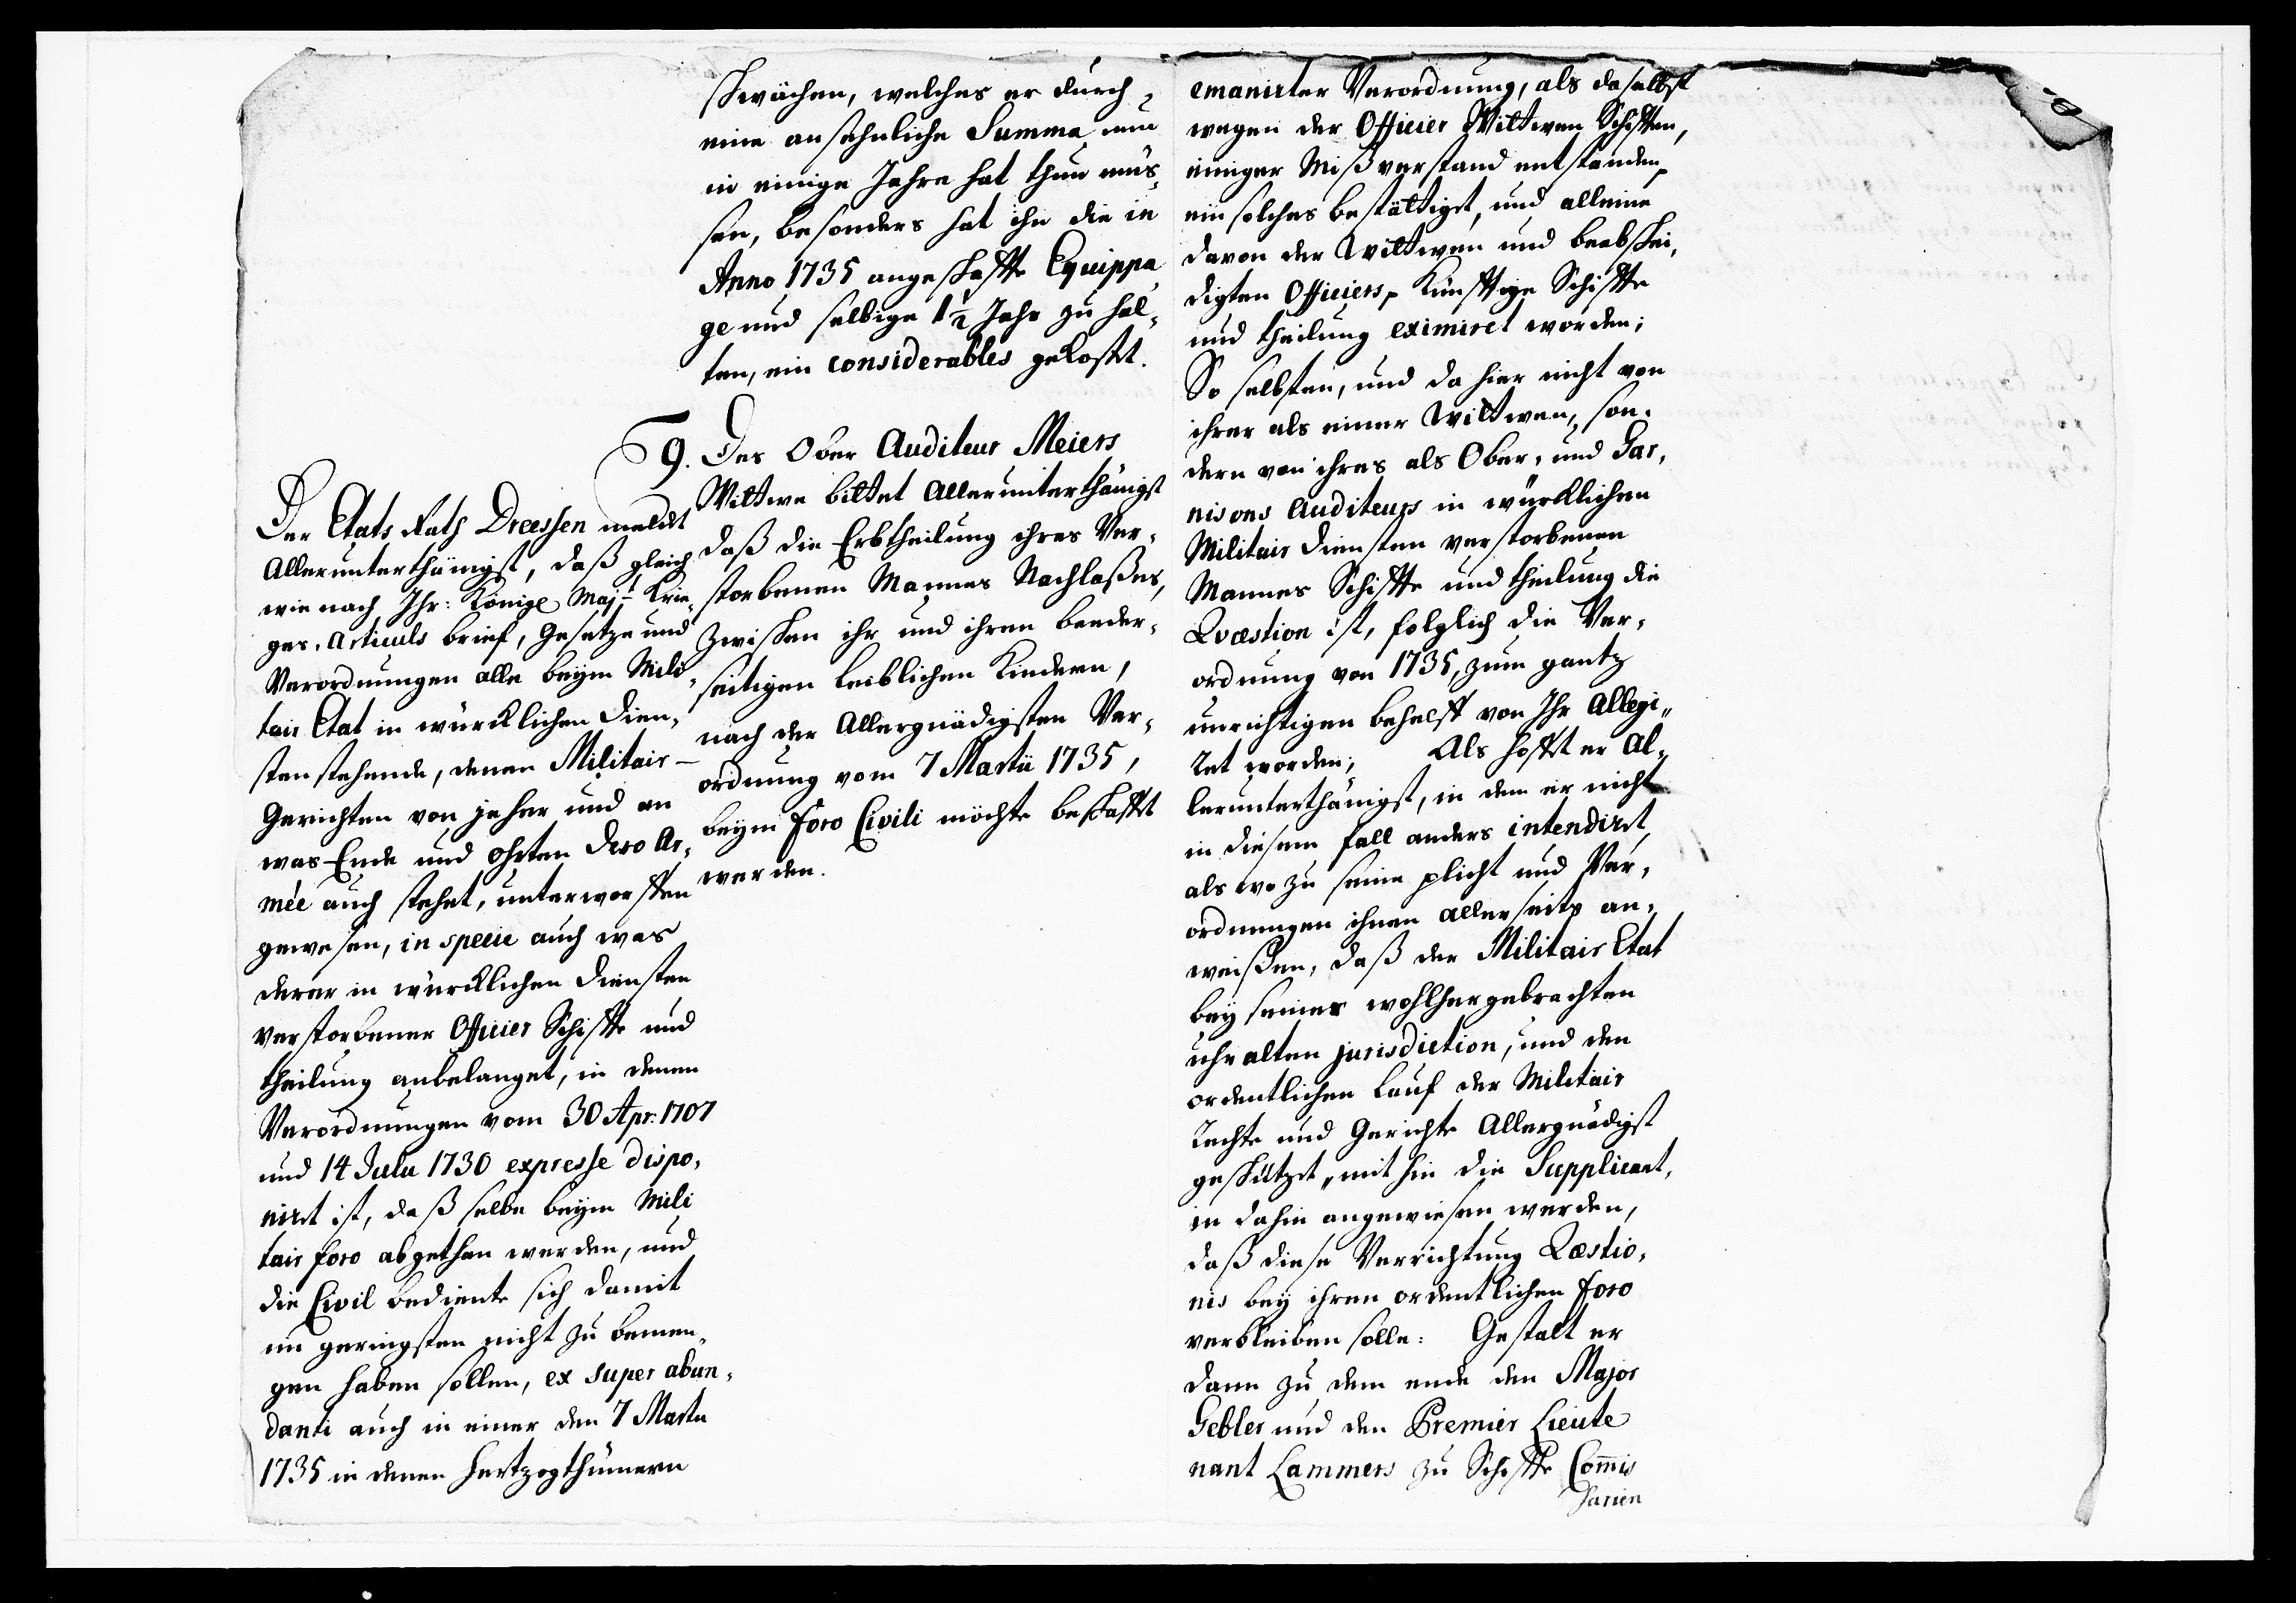 schwächen, welches er durch
eine ansehnliche Summa nun
in einige Jahre hat thun müs-
sen, besonders hat ihn die in
Anno 1735 angeschaffte Equippa
ge und selbige 1½ Jahr zu hal-
ten, ein considerables gekostet.
9. Des Ober Auditeur Meiers
Wittwe bittet Allerunterthänigst
daß die Erbtheilung ihres Ver-
storbenen Mannes Nachlaßes,
zwischen ihr und ihren beeder-
seitigen leiblichen Kindern,
nach der Allergnädigsten Ver-
ordnung vom 7 Martii 1735,
beym foro Civili möchte beschafft
werden.
Der Etats Rath Dreessen meldet
Allerunterthänigst, daß gleich
wie nach Ihr: Königl Majt Krie-
ges-Articuls brief, Gesetze und
Verordnungen alle beym Mili-
tair Etat in würcklichen Dien-
sten stehende, denen Militair-
Gerichten von jeher und an
was Ende und Ohrten dero Ar-
mée auch stehet, unterworffen
gewesen, in specie auch was
derer in würcklichen Diensten
verstorbener Officier Schiffte und
theilung anbelanget, in denen
Verordnungen vom 30 Apr: 1707
und 14 Julii 1730 expresse dispo-
niret ist, daß selbe beym Mili
tair foro abgethan werden, und
die Civil bediente sich damit
im geringsten nicht zu bemen-
gen haben sollen, ex super abun-
danti auch in einer den 7 Martii
1735 in denen Hertzogthümern
emanirter Verordnung, als daselbst
wegen der Officier Wittwen Schifften,
einiger Mißverstand entstanden,
ein solches bestättiget, und alleine
davon der Wittwen und beabschei-
digten Officiers, künfftige Schiffte
und theilung eximiret worden;
So selbsten, und da hier nicht von
ihrer als einer Wittwen, son-
dern von ihres als Ober- und Gar-
nisons Auditeurs in würcklichen
Militair Diensten verstorbenen
Mannes Schiffte und theilung die
Qvæstion ist, folglich die Ver-
ordnung von 1735, zum gantz
unrichtigen behelff von Ihr Allegi-
ret worden; Als hofft er Al-
lerunterthänigst, in dem er nicht
in diesem fall anders intendiret,
als wo zu seine plicht und Ver-
ordnungen ihnen allerseits an-
weisen, daß der Militair Etat
bey seiner wohlhergebrachten
uhralten jurisdiction, und den
ordentlichen Lauf der Militair
Rechte und Gerichte Allergnädigst
geschützet, mithin die Supplicant-
in dahin angewiesen werden,
daß diese Verrichtung Qæstio-
nis bey ihren ordentlichen foro
verbleiben solle: Gestalt er
dann zu dem ende den Major
Gebler und den Premier Lieute
nant Lammers zu Schiffte Commis
sarien